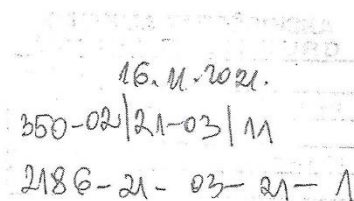 16.11.2021.
350-02/21-03/11
2186-21-03-21-1